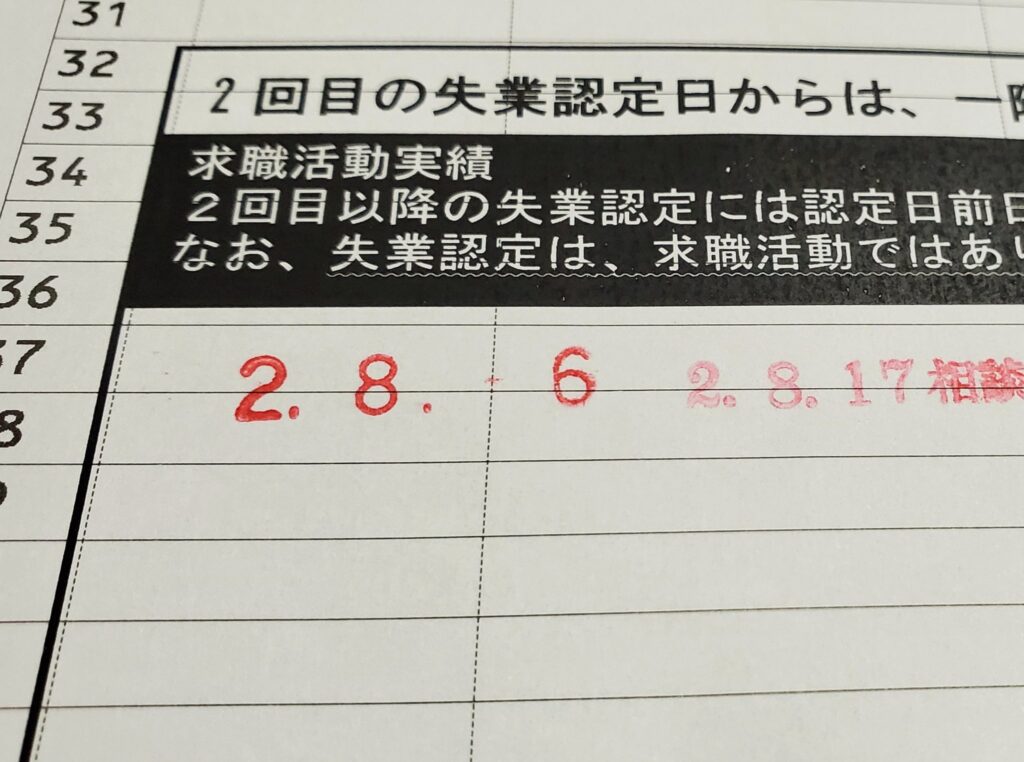 31
32
33
34
35
36
37
8
2回目の失業認定日からは、一
求職活動実績
2回目以降の失業認定には認定日前日
なお、失業認定は、求職活動ではあり
2. 8. 6 2. 8. 17 相談